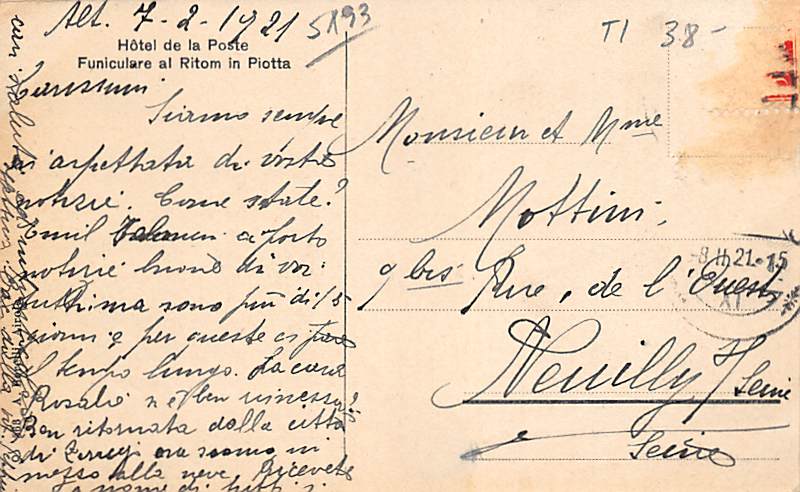 Alt. 7-2-1921
5893
TI 38-
Hôtel de la Poste
Funiculare al Ritom in Piotta
Carissimi
Siamo sempre
aspettata di vostre
notizie. Come state?
Emil
notizie buone di voi.
sono più di 15
giorni e per queste
il tempo lungo. La cara
Rosalì n'è ben
Ben ritornata dalla città
di ora siamo in
mezzo alla neve. Ricevete
Monsieur et Mme
Mottini,
9 bis Rue, de l'Ouest
Neuilly s/ Seine
Seine
8 II 21 - 15
con saluti